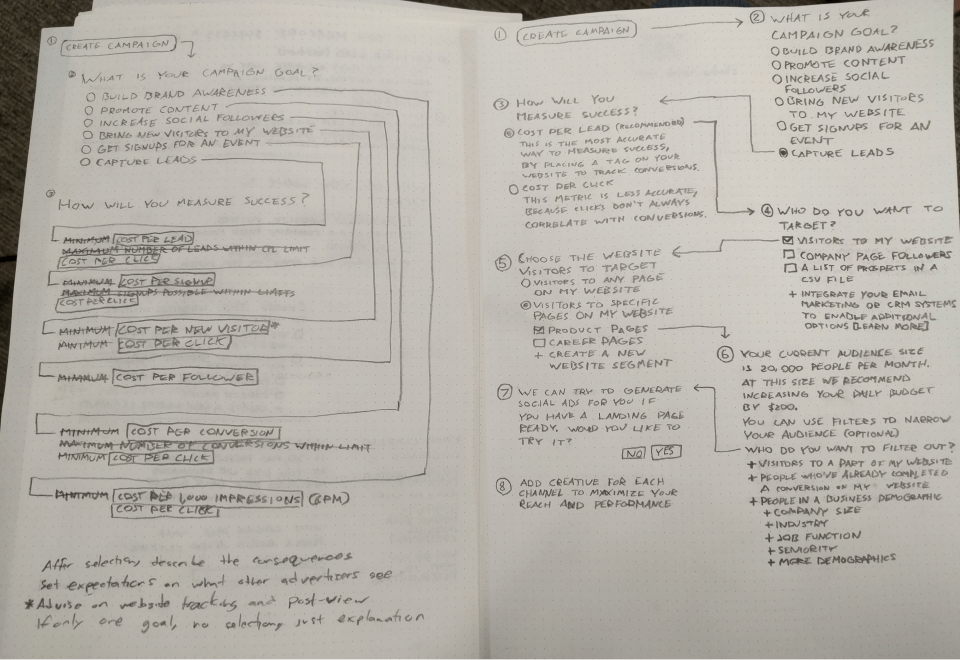 ① CREATE CAMPAIGN
② WHAT IS YOUR CAMPAIGN GOAL?
O BUILD BRAND AWARENESS
O PROMOTE CONTENT
O INCREASE SOCIAL FOLLOWERS
O BRING NEW VISITORS TO MY WEBSITE
O GET SIGNUPS FOR AN EVENT
O CAPTURE LEADS
③
HOW WILL YOU MEASURE SUCCESS?
MINIMUM COST PER LEAD
MAXIMUM NUMBER OF LEADS WITHIN CPL LIMIT
COST PER CLICK
MINIMUM COST PER SIGNUP
MAXIMUM SIGNUPS POSSIBLE WITHIN LIMITS
COST PER CLICK
MINIMUM COST PER NEW VISITOR*
MINIMUM COST PER CLICK
MINIMUM COST PER FOLLOWER
MINIMUM COST PER CONVERSION
MAXIMUM NUMBER OF CONVERSIONS WITHIN LIMIT
MINIMUM COST PER CLICK
MINIMUM COST PER 1,000 IMPRESSIONS (CPM)
COST PER CLICK
After selection, describe the consequences
Set expectations on what other advertisers see
*Advise on website tracking and post-view
If only one goal, no selection, just explanation
① CREATE CAMPAIGN
② WHAT IS YOUR
CAMPAIGN GOAL?
O BUILD BRAND AWARENESS
O PROMOTE CONTENT
O INCREASE SOCIAL
FOLLOWERS
O BRING NEW VISITORS
TO MY WEBSITE
O GET SIGNUPS FOR AN
EVENT
CAPTURE LEADS
③ HOW WILL YOU
MEASURE SUCCESS?
COST PER LEAD (RECOMMENDED)
THIS IS THE MOST ACCURATE
WAY TO MEASURE SUCCESS,
BY PLACING A TAG ON YOUR
WEBSITE TO TRACK CONVERSIONS.
O COST PER CLICK
THIS METRIC IS LESS ACCURATE,
BECAUSE CLICKS DON'T ALWAYS
CORRELATE WITH CONVERSIONS.
④ WHO DO YOU WANT TO
TARGET?
VISITORS TO MY WEBSITE
COMPANY PAGE FOLLOWERS
A LIST OF PROSPECTS IN A
CSV FILE
+ INTEGRATE YOUR EMAIL
MARKETING OR CRM SYSTEMS
TO ENABLE ADDITIONAL
OPTIONS [LEARN MORE]
⑤ CHOOSE THE WEBSITE
VISITORS TO TARGET
O VISITORS TO ANY PAGE
ON MY WEBSITE
VISITORS TO SPECIFIC
PAGES ON MY WEBSITE
PRODUCT PAGES
CAREER PAGES
+ CREATE A NEW
WEBSITE SEGMENT
⑥ YOUR CURRENT AUDIENCE SIZE
IS 20,000 PEOPLE PER MONTH.
AT THIS SIZE WE RECOMMEND
INCREASING YOUR DAILY BUDGET
BY $200.
YOU CAN USE FILTERS TO NARROW
YOUR AUDIENCE (OPTIONAL)
WHO DO YOU WANT TO FILTER OUT?
+ VISITORS TO A PART OF MY WEBSITE
+ PEOPLE WHO'VE ALREADY COMPLETED
A CONVERSION ON MY WEBSITE
+ PEOPLE IN A BUSINESS DEMOGRAPHIC
+ COMPANY SIZE
+ INDUSTRY
+ JOB FUNCTION
+ SENIORITY
+ MORE DEMOGRAPHICS
⑦ WE CAN TRY TO GENERATE
SOCIAL ADS FOR YOU IF
YOU HAVE A LANDING PAGE
READY. WOULD YOU LIKE TO
TRY IT?
NO YES
⑧ ADD CREATIVE FOR EACH
CHANNEL TO MAXIMIZE YOUR
REACH AND PERFORMANCE